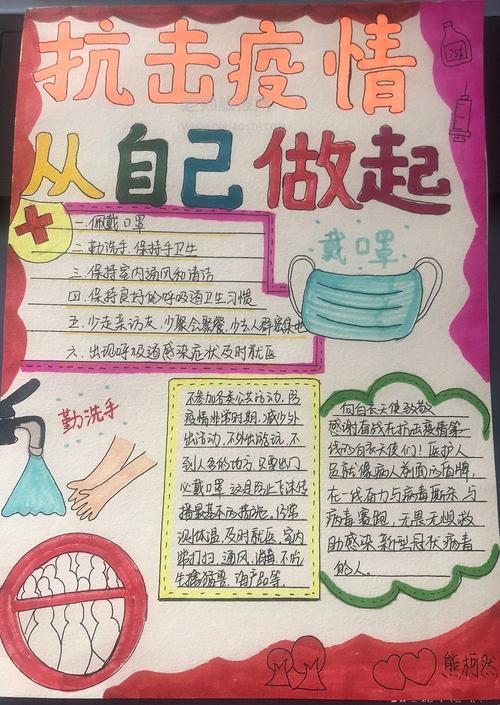 抗击疫情
75%
从自己做起
一.佩戴口罩
二.勤洗手.保持手卫生
三.保持室内通风和清洁
四.保持良好的呼吸道卫生习惯
五.少走亲访友,少聚会聚餐,少去人群密集地
六.出现呼吸道感染症状及时就医
戴口罩
勤洗手
不参加各类公共活动.防
疫情非常时期.减少外
出活动.不外出游玩.不
到人多的地方.只要出门
必戴口罩.这是防止飞沫传
播最基本的措施.
测体温.及时就医.室内
常打扫.通风.消毒.不吃
生禽猛兽.海产品等.
向白衣天使致敬
感谢奋战在抗击疫情第一
线的白衣天使们!医护人
员就像病人前面的盾牌
在一线奋力与病毒厮杀.与
病毒赛跑.无畏无惧救
助感染新型冠状病毒
的人.
熊柯然